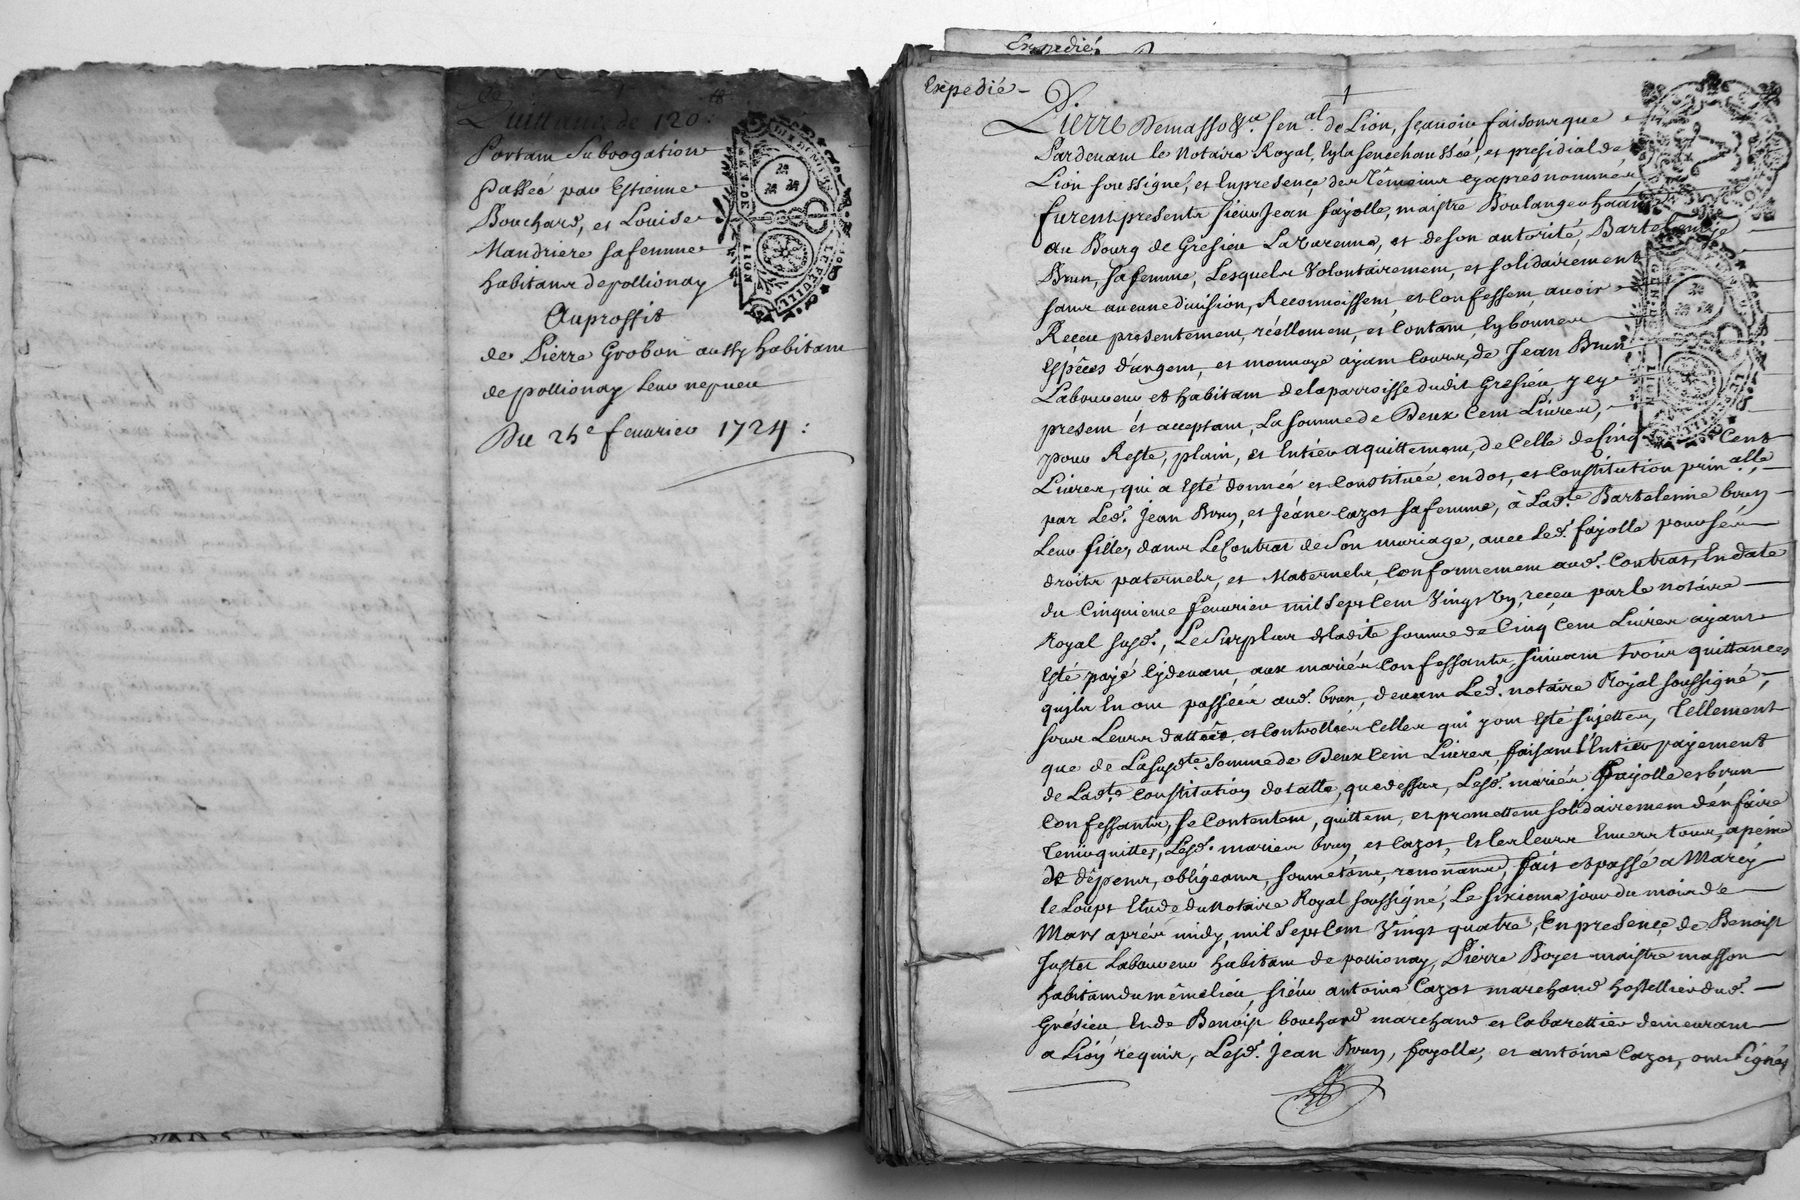 Quittance de 120 ₶
Portant Subrogation
passée par Estienne
Bouchard, et Louise
Mandriere sa femme
habitans de pollionay
Au proffit
de Pierre Grobon aussy habitant
de pollionay leur nepueu
Du 25e feurier 1724 :
Expedié
Expedié -
Pierre Demasso &.a sen.al de Lion, sçauoir faisons que
Pardeuant le Notaire Royal, en la senechaussée, et presidial de
Lion soussigné, et en presence des témoins cy apres nommés
furent presents sieur Jean fayolle, maistre Boulanger habitant
au Bourg de Gresieu La Varenne, et de son autorité, Bartelemie
Brun, sa femme, Lesquels Volontairement, et solidairement
sans aucune diuision, Reconnoissent, et confessent, auoir
Reçeu presentement, réellement, et Contant, en bonnes
espéces d'argent, et monnoye ayant Cours, de Jean Brun
Laboureur et habitant de la parroisse dudit Gresieu, icy
present et acceptant, La somme de Deux Cent Liures,
pour Reste, plain, et Entier aquittement, de Celle de Cinq Cent
Liures, qui a esté donnée et Constituée, en dot, et Constitution prin.alle
par Led. Jean Brun, et Jeane Cazot sa femme, à Lad.te Bartelemie brun
Leur fille, dans Le Contrat de Son mariage, auec Led. fayolle pour sés
droits paternels, et Maternels, Conformement aud. Contrat, En date
du Cinquieme feurier mil Sept Cent Vingt un, reçeu par le notaire
Royal susd., Le Surplus de ladite somme de Cinq Cent Liures ayant
esté payé cy deuant, aux mariés Confessants, suiuant trois quittances
qu'ils En ont passées aud. brun, deuant Led. notaire Royal soussigné,
sous Leurs dattes, et Controllées Celles qui y ont esté sujettes, Tellement
que de La susd.te Somme de Deux Cent Liures, faisant l'Entier payement
de Lad.te Constitution dotalle, que dessus, Lesd. mariés fayolle et brun
Confessants, se Contentent, quittent, et promettent solidairement d'en faire
tenir quittes, Lesd. mariés brun, et Cazot, et les leurs Enuers tous, a peine
de dépens, obligeans, soumetans, renonçans, fait et passé a Marcy
le Loup, Etude du Notaire Royal soussigné, Le sixieme jour du mois de
Mars aprés midy, mil Sept Cent Vingt quatre, En presence de Benoist
Juttet Laboureur habitant de pollionay, Pierre Boyer maistre masson
habitant du même lieu, sieur antoine Cazot marchand hostellier dud.
Grésieu Et de Benoist bouchard marchand et Cabarettier demeurant
a Lion requis, Lesd. Jean Brun, fayolle, et antoine Cazot, ont Signés